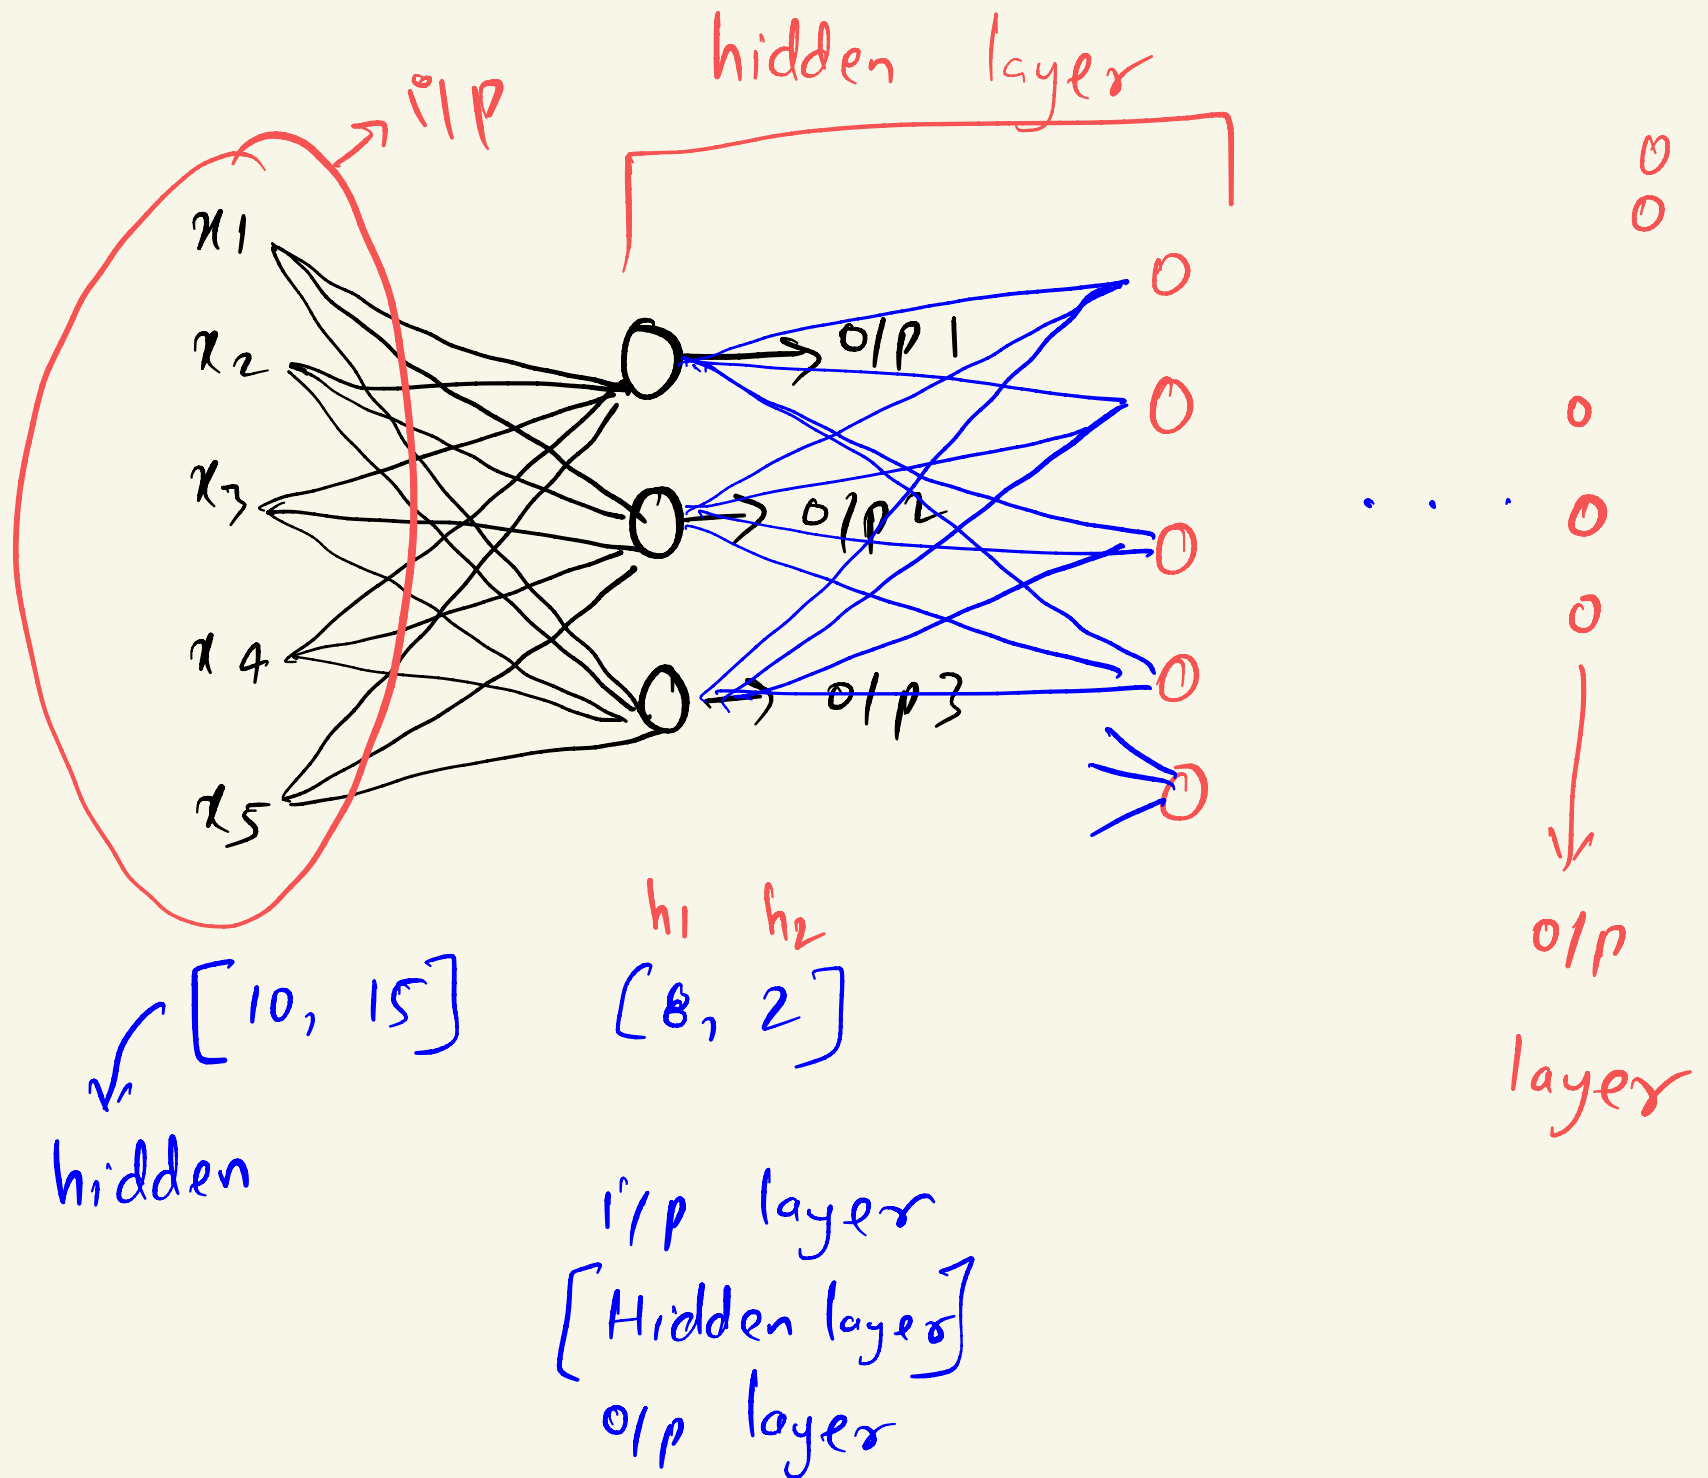 hidden layer
i/p
x1
x2
x3
x4
x5
o/p 1
o/p 2
o/p 3
. . .
o/p
layer
h1 h2
[10, 15]
[8, 2]
hidden
i/p layer
[Hidden layer]
o/p layer